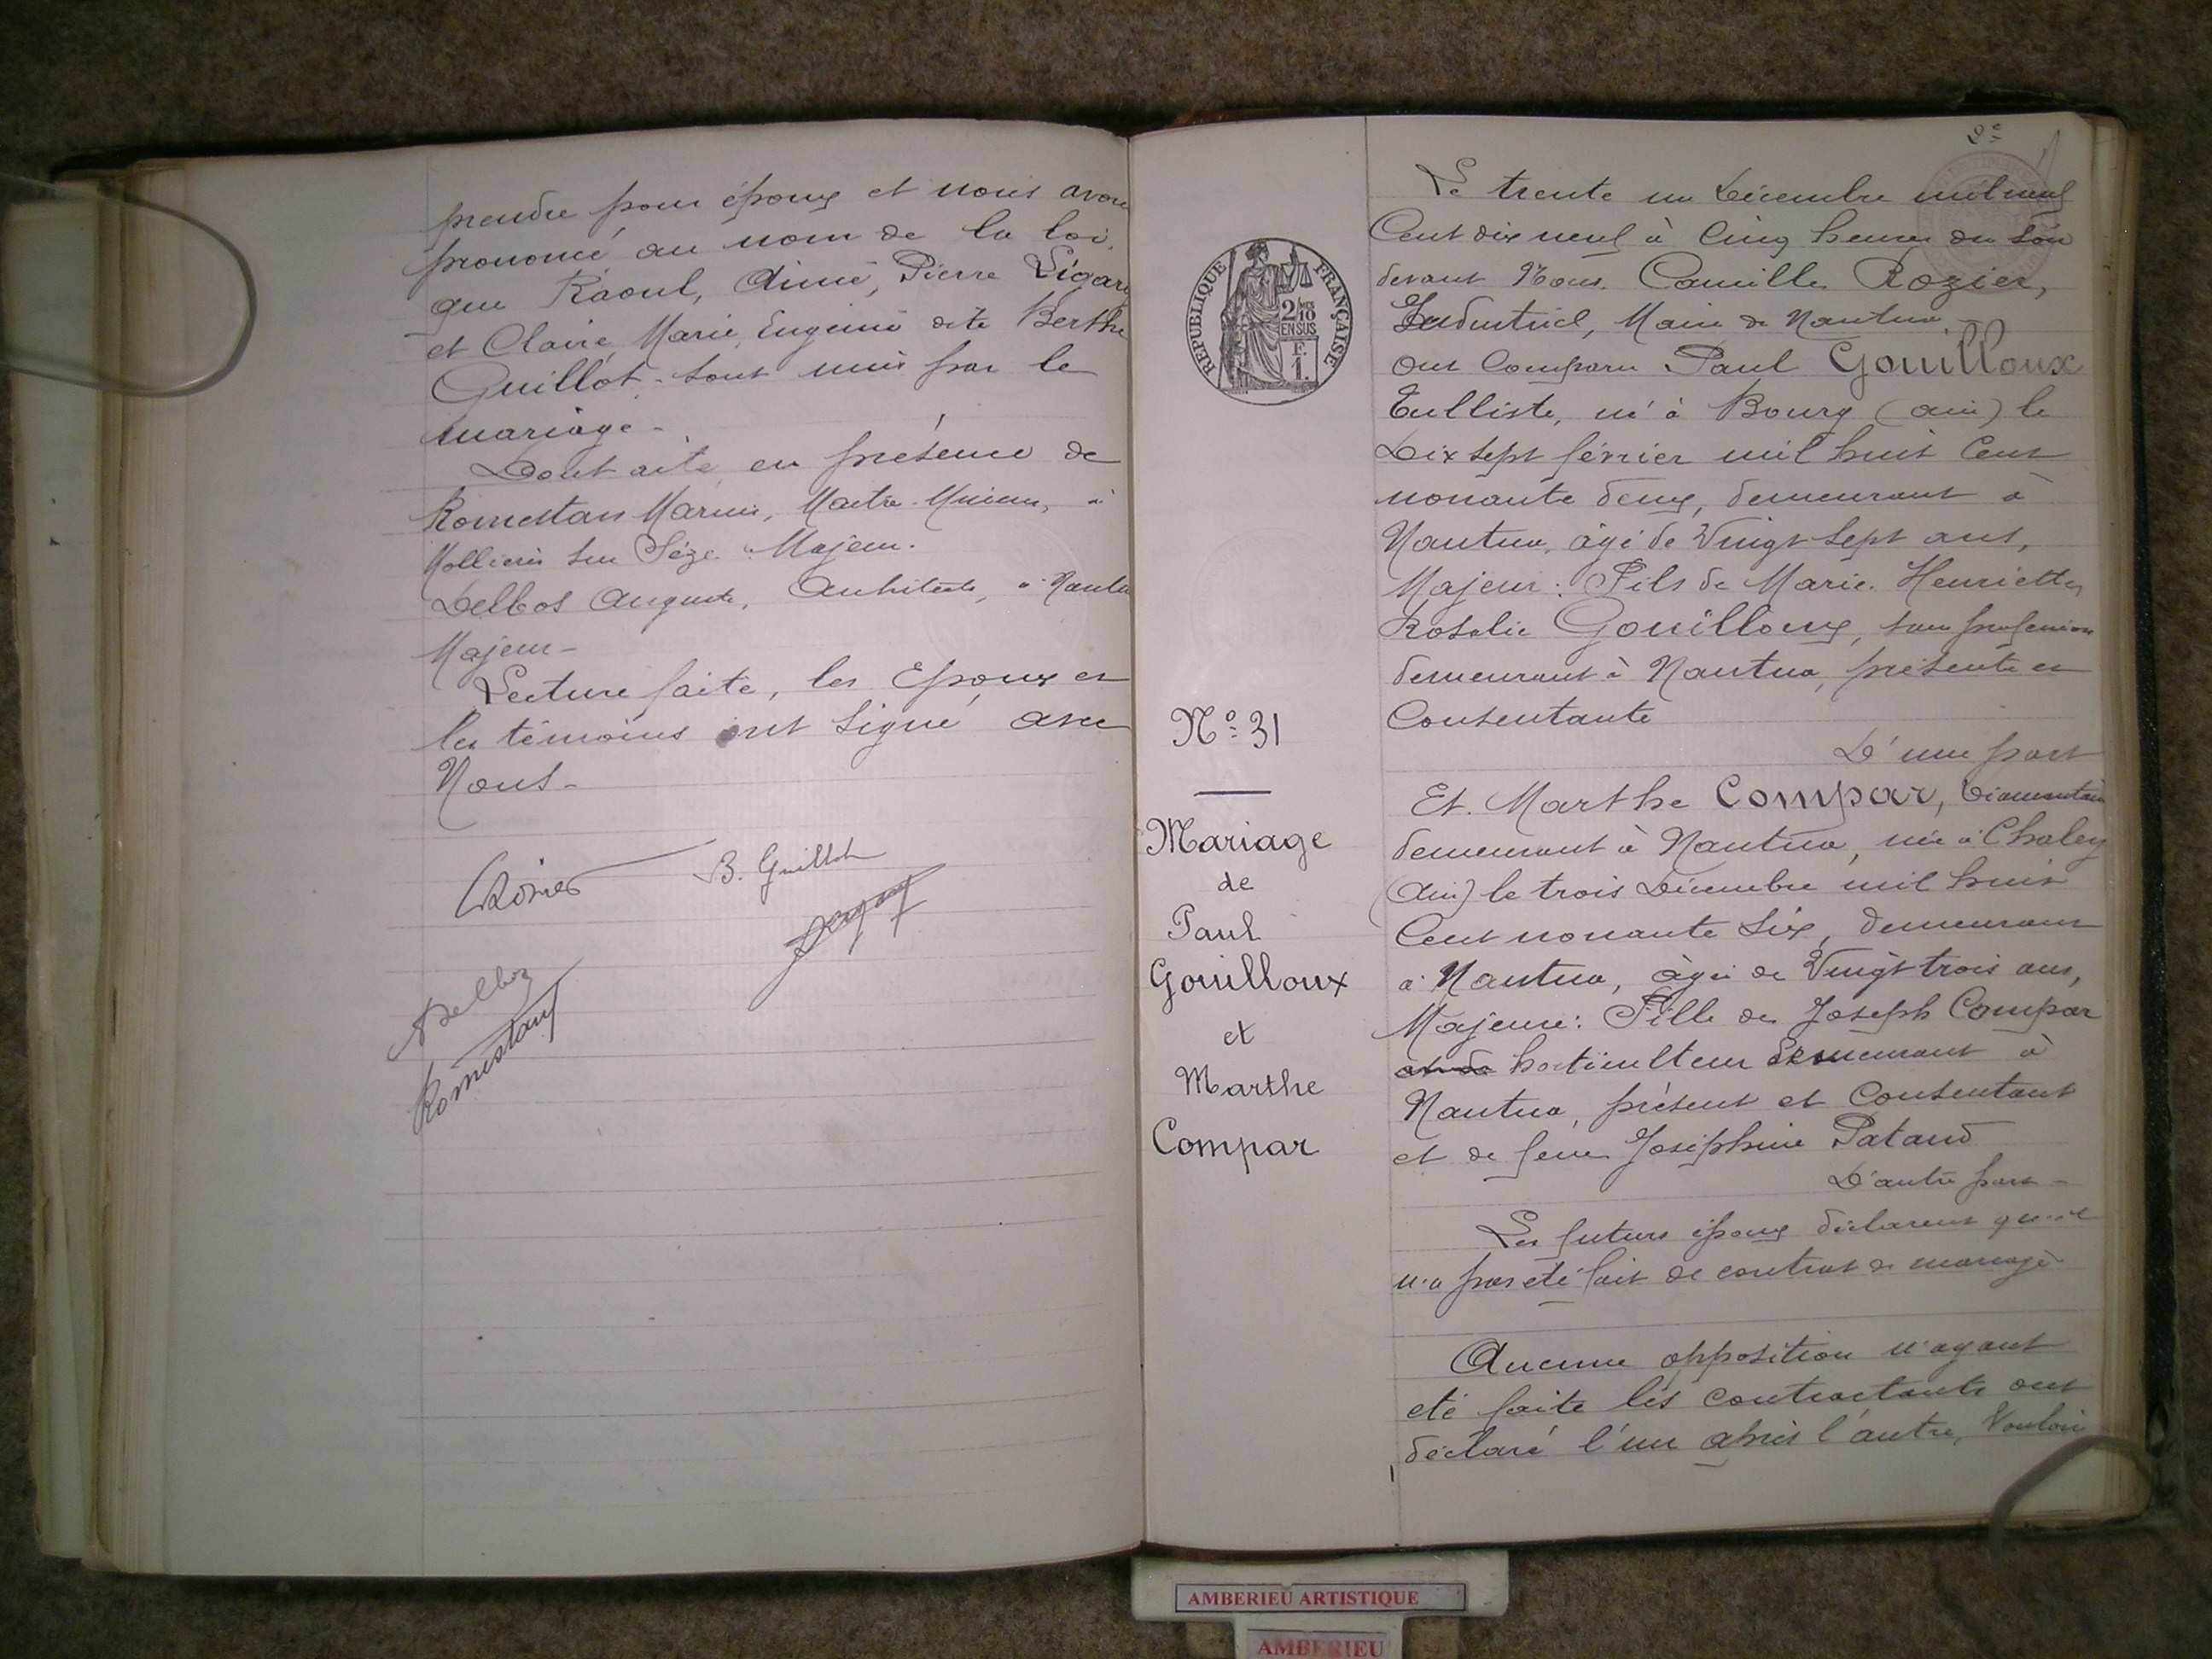 prendre pour époux et nous avons
prononcé au nom de la loi,
que Raoul, Aimé, Pierre
et Claire, Marie, Eugénie dite Berthe
Guillot, sont unis par le
mariage -
Dont acte, en présence de
Romestan Marius, Maitre-Mineur, à
Mollières sur Sèze Majeur.
Delbos Auguste, Architecte, à Nantua
Majeur -
Lecture faite, les Epoux et
les témoins ont signé, avec
Nous -
B. Guillot
Delbos
Romestan
2e
Le trente un Décembre mil neuf
Cent dix neuf à Cinq heures du soir
devant Nous Camille Rozier,
Industriel, Maire de Nantua -
REPUBLIQUE FRANÇAISE
2/10 EN SUS
F. 1.
ont Comparu Paul Gouilloux
Tulliste, né à Bourg (ain) le
Dix sept février mil huit Cent
nonante deux, demeurant à
Nantua, âgé de Vingt sept ans,
Majeur : Fils de Marie Henriette
Rosalie Gouilloux, sans profession
demeurant à Nantua, présente et
Consentante
D'une part
Et Marthe Compar, Diamantaire
demeurant à Nantua, née à Chaley
(Ain) le trois Décembre mil huit
Cent nonante Six, demeurant
à Nantua, âgée de Vingt trois ans,
Majeure : Fille de Joseph Compar
et de horticulteur demeurant à
Nantua, présent et Consentant
et de feue Joséphine Pataud
D'autre part -
Les futurs époux déclarent qu'il
n'a pas été fait de contrat de mariage
Aucune opposition n'ayant
été faite les contractants ont
déclaré l'un après l'autre, Vouloir
No 31
Mariage
de
Paul
Gouilloux
et
Marthe
Compar
AMBERIEU ARTISTIQUE
AMBERIEU